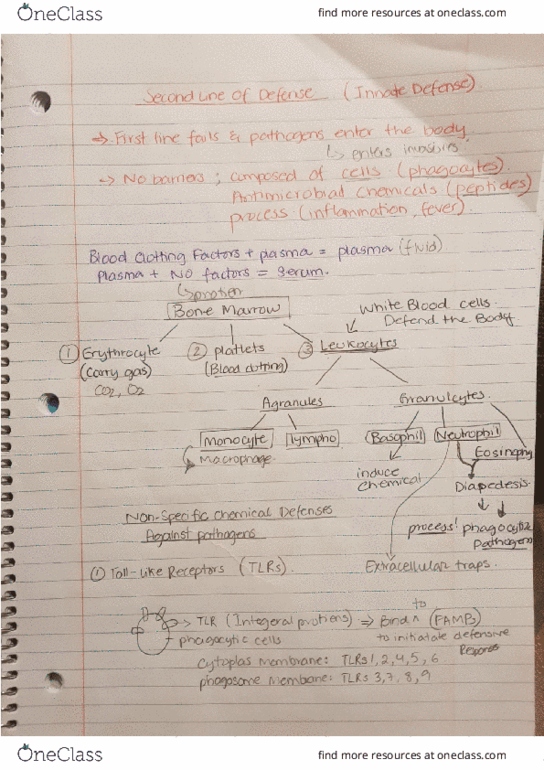 OneClass find more resources at oneclass.com
Second Line Of Defense (Innate Defense)
→ First line fails & pathogens enter the body
↳ enters invasions
→ No barriers ; composed of cells (phagocytes)
Antimicrobial chemicals (peptides)
process (inflammation, fever).
Blood Clotting Factors + plasma = plasma (fluid)
Plasma + NO factors = serum.
↳ protien
Bone Marrow
White Blood cells
Defend the Body
① Erythrocyte ② platlets ③ Leukocytes
(carry gas) (Blood clotting)
CO2, O2
Agranules Granulcytes
Monocyte lympho Basophil Neutrophil
Macrophage Eosinophy
induce
chemical
Diapedesis
Non-Specific Chemical Defenses
Against pathogens
process! phagocytize
Pathogens
① Toll-Like Receptors (TLRs). Extracellular traps.
→ TLR (Integeral protiens) ⇒ Bind ^ to (PAMPs)
phagacytic cells to initiatate defensive
Response
Cytoplas membrane: TLRs 1, 2, 4, 5, 6
phagosome Membane: TLRs 3, 7, 8, 9
OneClass find more resources at oneclass.com